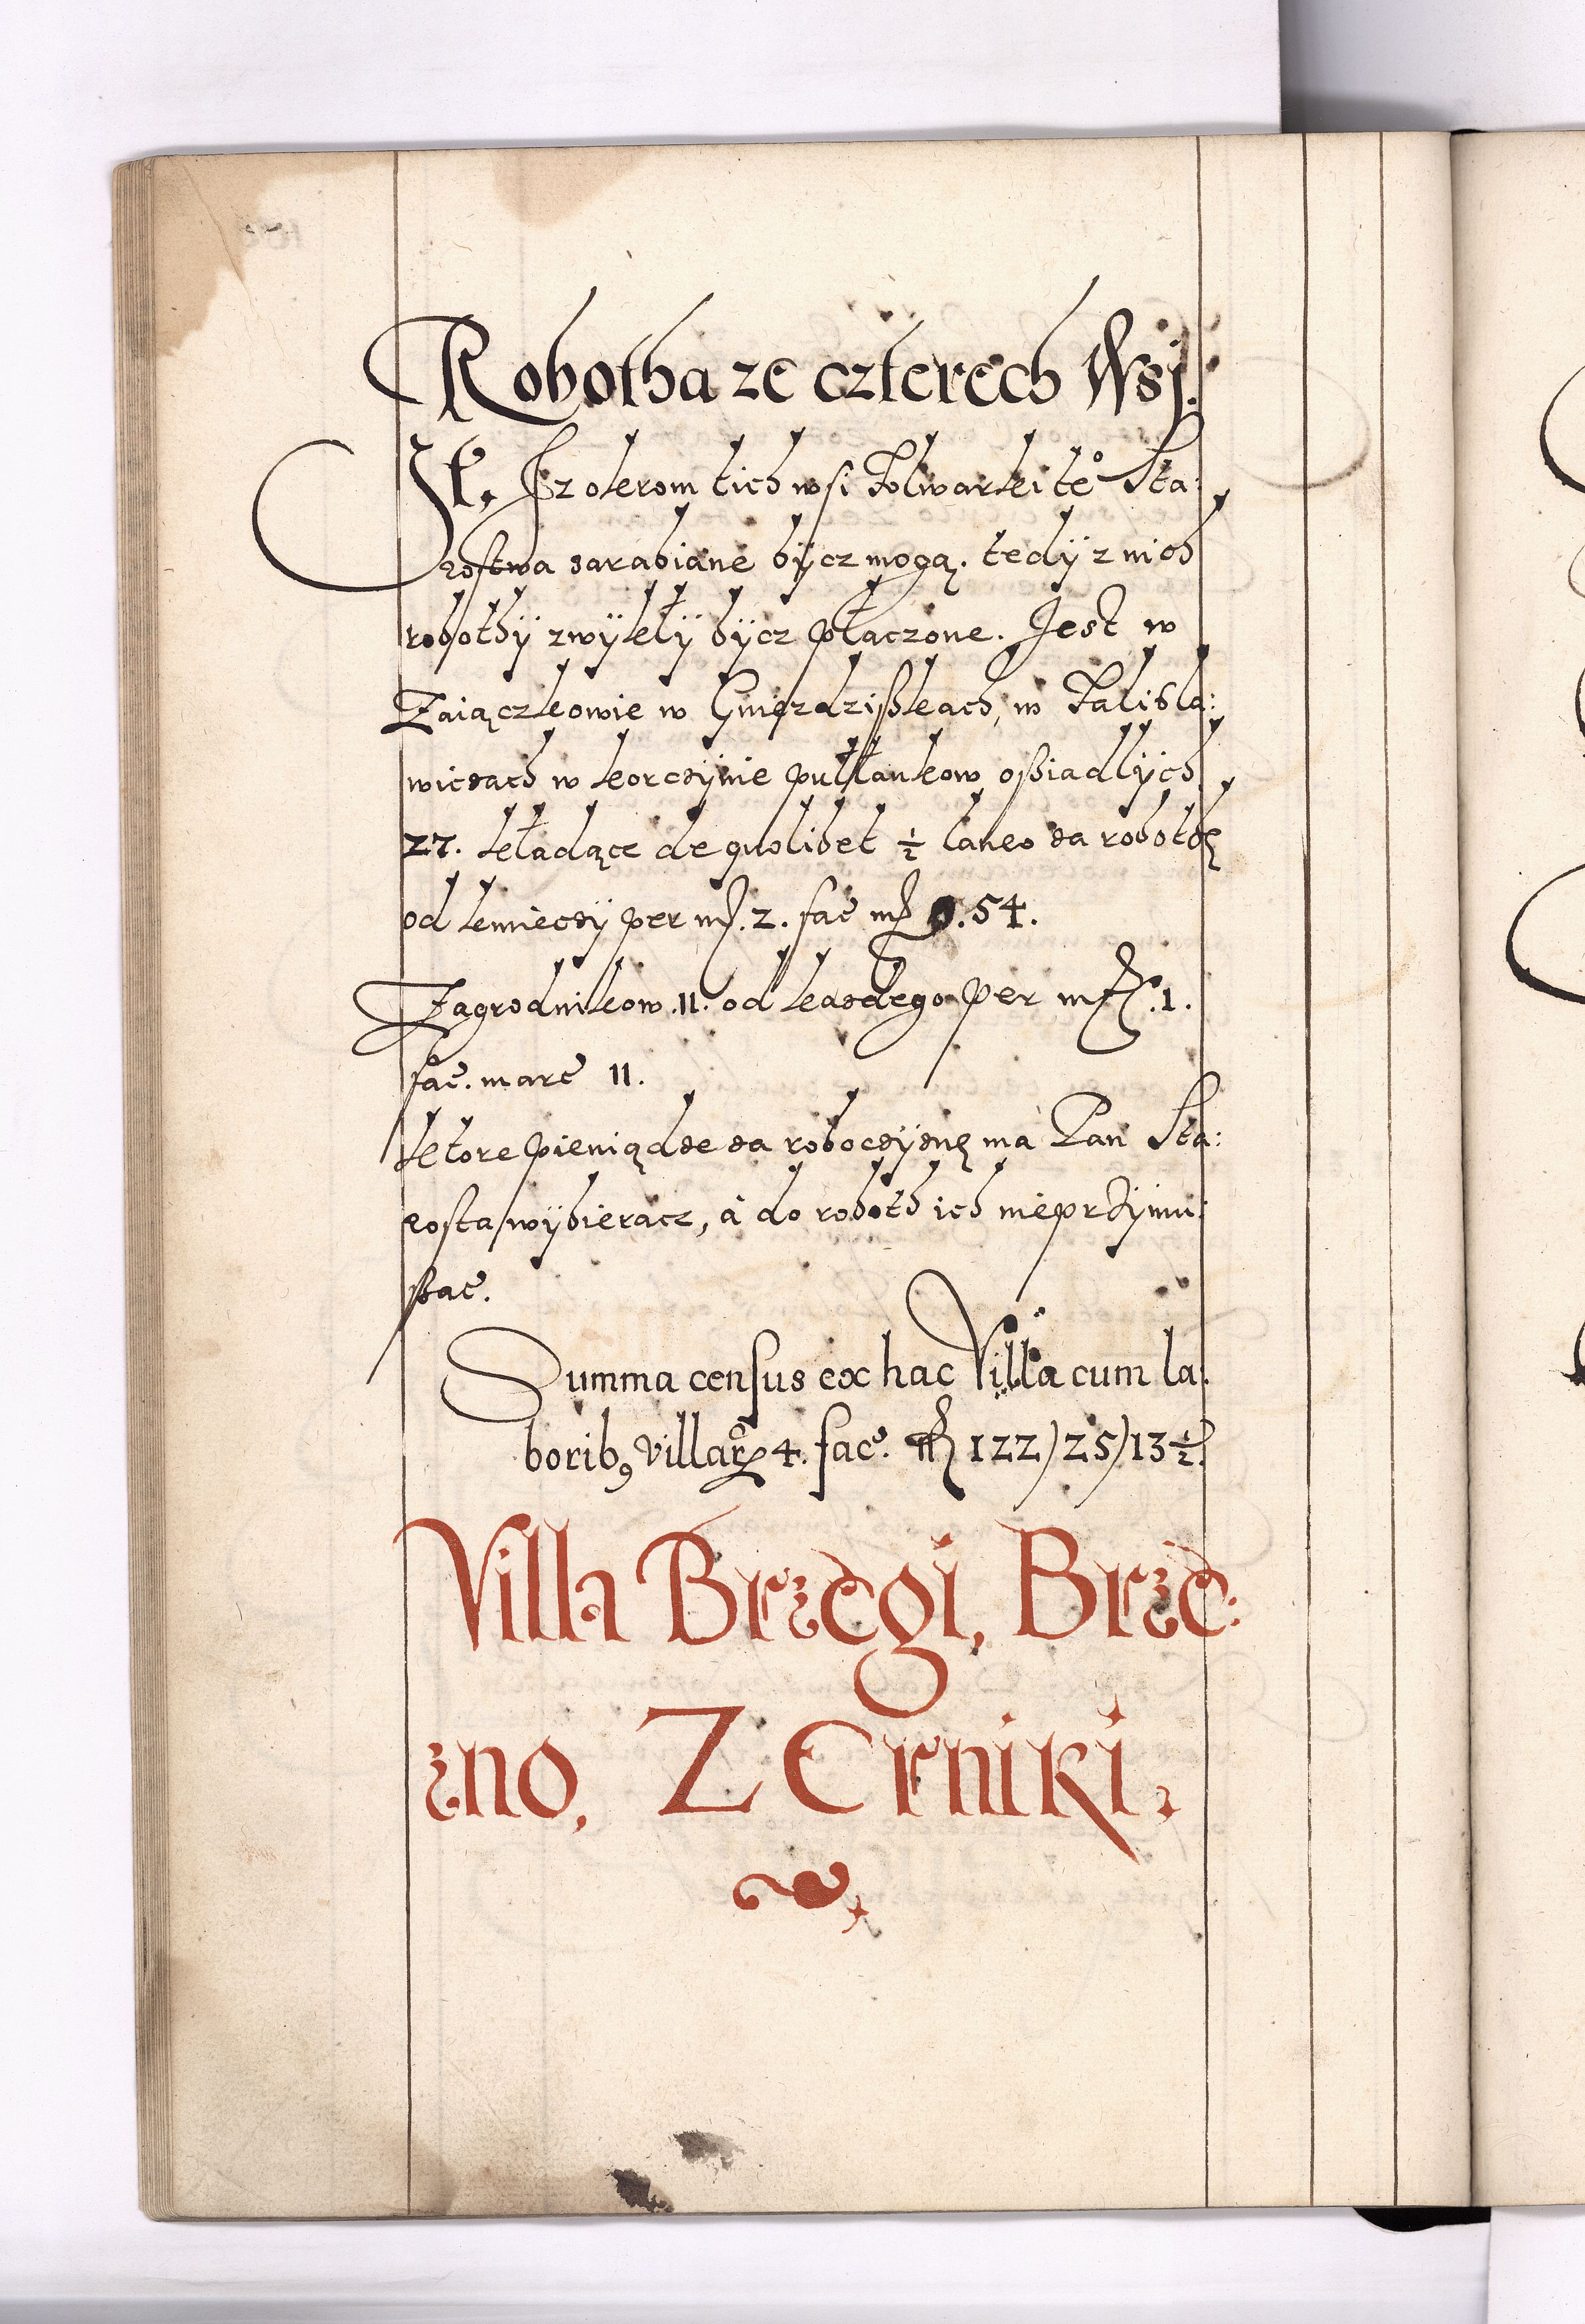 Robotha ze czterech Wsj.
It. Jz okrom tich wsi Folwarki te° Sta:
rostwa zarabiane bÿcz mogą. tedÿ z nich
robothÿ zwÿkłÿ bÿcz płaczone. Jest w
Zaiączkowie w Gniezdzißkach, w Falibla:
wiczach w korczÿnie pułłankow oßiadlÿch
27. kładącz de quolibet ½ laneo za robothę
od kmieczÿ per mỻ. 2. fac̃ mỻ 0. 54.
Zagrodnikow .11. od kazdego per mrꝭ. 1.
fac̃. marc̃ 11.
ktore pieniądze za roboczÿznę ma Pan Sta:
rosta wÿbieracz, á do roboth ich nieprzÿmu:
ßac̃.
Summa census ex hac Villa cum la:
borib9 villarꝝ 4. fac̃. mꝭ 122/25/13½.
Villa Brzegi, Brze:
zno, ZErniki.